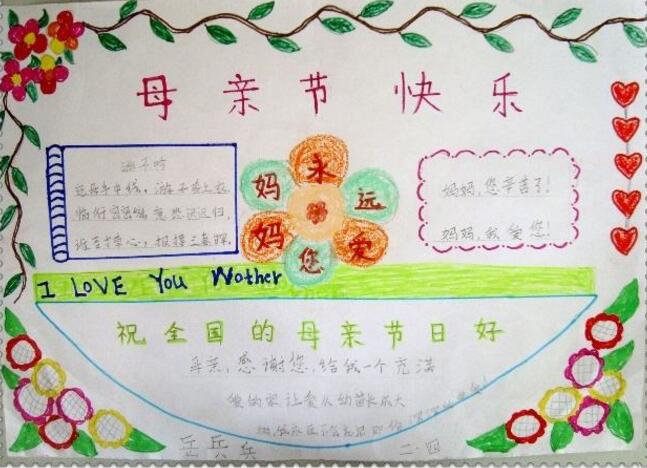 母亲节快乐
游子吟
慈母手中线，游子身上衣，
临行密密缝，意恐迟迟归，
谁言寸草心，报得三春晖。
妈妈永远爱您
妈妈，您辛苦了！
妈妈，我爱您！
I LOVE You Wother
祝全国的母亲节日好
母亲，感谢您，给我一个充满
爱的家，让爱从幼苗长大
二·四